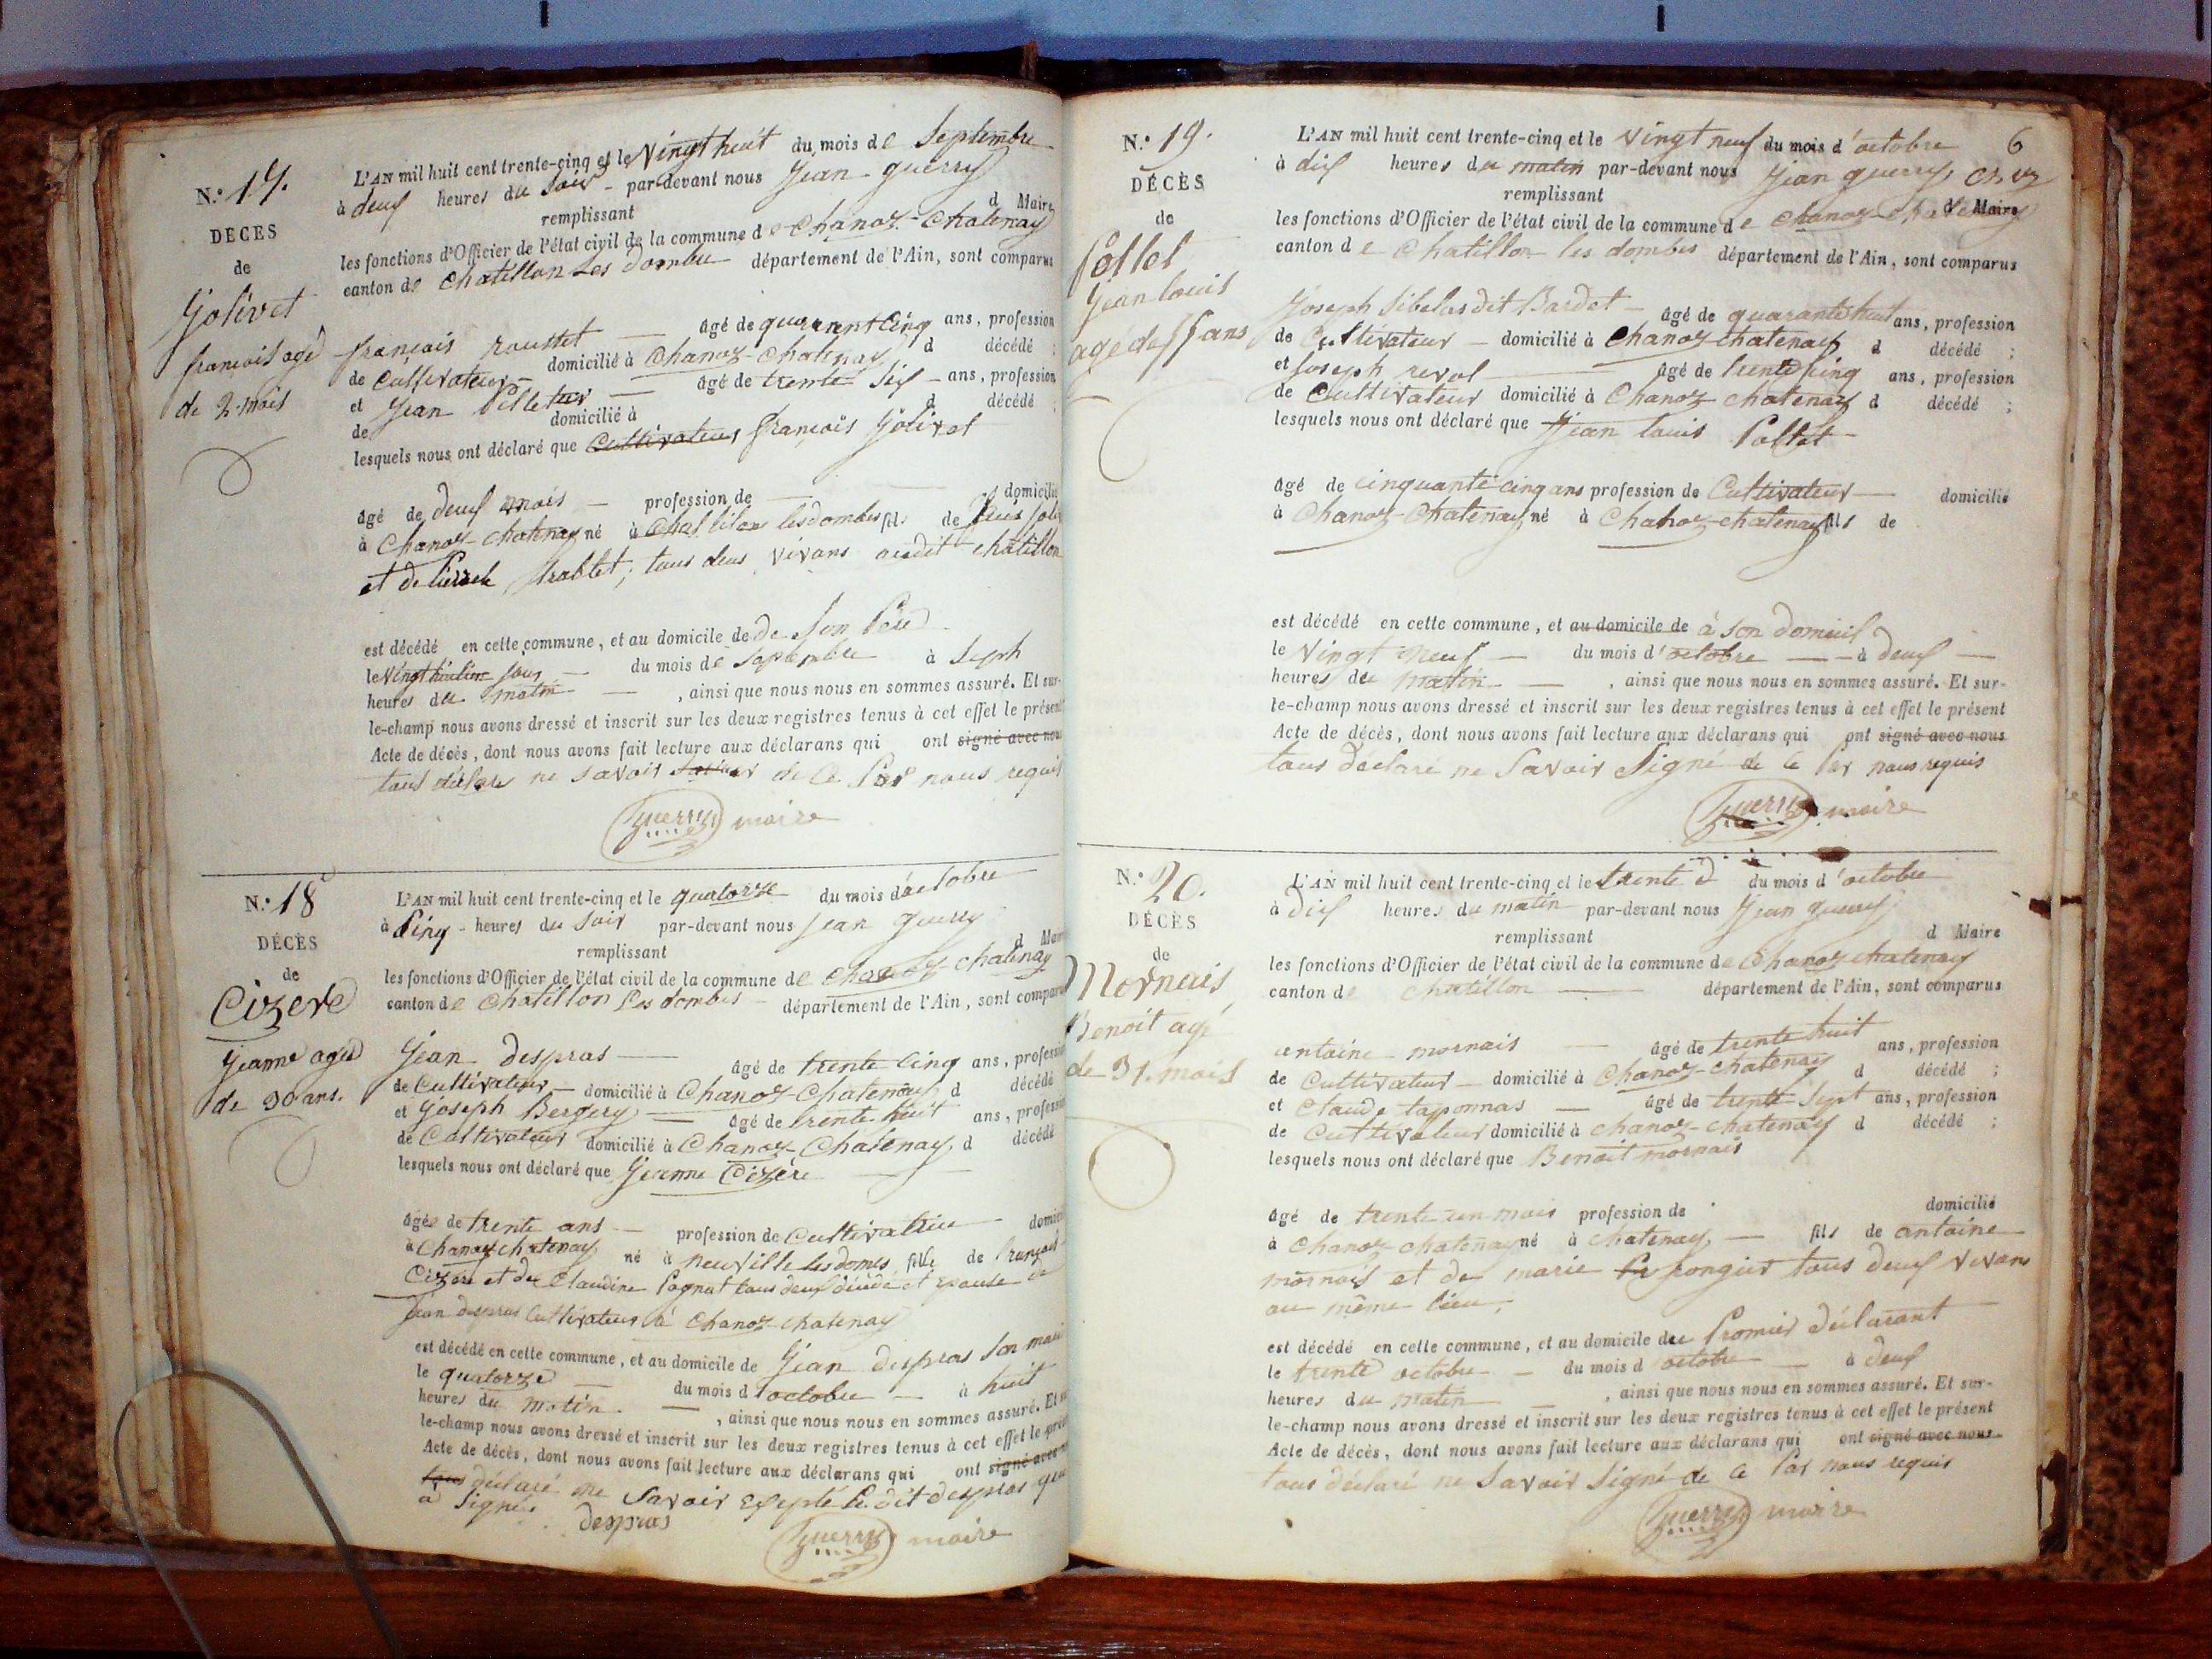 N.° 17.
DÉCÈS
de
Jolivet
françois agé
de 2 mois
L'AN mil huit cent trente-cinq et le Vingt huit du mois de Septembre
à deux heures du soir par-devant nous Jean guerry
d Maire
remplissant
les fonctions d'Officier de l'état civil de la commune de Chanoz-Chatenay
canton de Chatillon Les dombes département de l'Ain, sont comparus
françois roustet âgé de quarentcinq ans, profession
de Cultivateur domicilié à Chanoz-Chatenay d décédé ;
et Jean Pelletier âgé de trente six ans, profession
de domicilié à d décédé ;
lesquels nous ont déclaré que Cultivateur françois Jolivet
âgé de deux mois profession de domicilié
à Chanoz-chatenay né à Chatillon lesdombes fils de
et de tous deux vivans audit chatillon
est décédé en cette commune, et au domicile de de Son Père
le Vingt du mois de Septembre à Seph
heures du matin , ainsi que nous nous en sommes assuré. Et sur-
le-champ nous avons dressé et inscrit sur les deux registres tenus à cet effet le présent
Acte de décès, dont nous avons fait lecture aux déclarans qui ont signé avec nous
tous déclaré ne savoir de ce Par nous requis
Guerry maire
N.° 18
DÉCÈS
de
Cizere
Jeanne agée
de 30 ans.
L'AN mil huit cent trente-cinq et le quatorze du mois d'octobre
à Cinq heures du soir par-devant nous Jean guerry
d Maire
remplissant
les fonctions d'Officier de l'état civil de la commune de Chanoz-chatenay
canton de Chatillon Les dombes département de l'Ain, sont comparus
Jean despras âgé de trente cinq ans, profession
de Cultivateur domicilié à Chanoz-Chatenay d décédé
et Joseph Bergery âgé de trente huit ans, profession
de Cultivateur domicilié à Chanoz-Chatenay d décédé
lesquels nous ont déclaré que Jeanne Cizère
âgée de trente ans profession de Cultivatrice domicilié
à Chanoz chatenay né à neuville les domes fille de françois
Cizère et de Claudine Pagnat tous deux décédé et Epouse de
Jean despras Cultivateur à Chanoz-chatenay
est décédé en cette commune, et au domicile de Jean despras Son mari
le quatorze du mois d octobre à huit
heures du matin. , ainsi que nous nous en sommes assuré. Et sur-
le-champ nous avons dressé et inscrit sur les deux registres tenus à cet effet le présent
Acte de décès, dont nous avons fait lecture aux déclarans qui ont signé avec nous
tous déclaré ne Savoir Excepté Le dit despras qui
a Signé. despras
Guerry maire
6
N.° 19.
DÉCÈS
de
Pollet
Jean louis
agé de 55 ans
L'AN mil huit cent trente-cinq et le Vingt neuf du mois d'octobre
à dix heures du matin par-devant nous Jean guerry
d Maire
remplissant
les fonctions d'Officier de l'état civil de la commune de Chanoz-chatenay
canton de Chatillon les dombes département de l'Ain, sont comparus
Joseph Sibelas dit Bardet âgé de quarantehuit ans, profession
de Cultivateur domicilié à Chanoz-chatenay d décédé ;
et Joseph revol âgé de trentecinq ans, profession
de Cultivateur domicilié à Chanoz chatenay d décédé ;
lesquels nous ont déclaré que Jean louis Pollet
âgé de cinquante cinq ans profession de Cultivateur domicilié
à Chanoz-chatenay né à Chanoz-chatenay fils de
est décédé en cette commune, et au domicile de à son domicil
le Vingt neuf du mois d'octobre à deux
heures du matin , ainsi que nous nous en sommes assuré. Et sur-
le-champ nous avons dressé et inscrit sur les deux registres tenus à cet effet le présent
Acte de décès, dont nous avons fait lecture aux déclarans qui ont signé avec nous
tous déclaré ne Savoir Signé de ce Par nous requis
Guerry maire
N.° 20.
DÉCÈS
de
Mornais
Benoit agé
de 31. mois
L'AN mil huit cent trente-cinq et le trente du mois d'octobre
à dix heures du matin par-devant nous Jean guerry
d Maire
remplissant
les fonctions d'Officier de l'état civil de la commune de Chanoz chatenay
canton de chatillon département de l'Ain, sont comparus
antoine mornais âgé de trente huit ans, profession
de Cultivateur domicilié à Chanoz-chatenay d décédé ;
et Claude taponnas âgé de trente Sept ans, profession
de Cultivateur domicilié à chanoz-chatenay d décédé ;
lesquels nous ont déclaré que Benoit mornais
âgé de trente un mois profession de domicilié
à Chanoz-chatenay né à chatenay fils de antoine
mornais et de marie pongier tous deux vivans
au même lieu,
est décédé en cette commune, et au domicile du Promier déclarant
le trente octobre du mois d octobre à deux
heures du matin , ainsi que nous nous en sommes assuré. Et sur-
le-champ nous avons dressé et inscrit sur les deux registres tenus à cet effet le présent
Acte de décès, dont nous avons fait lecture aux déclarans qui ont signé avec nous
tous déclaré ne Savoir Signé de ce Par nous requis
Guerry maire